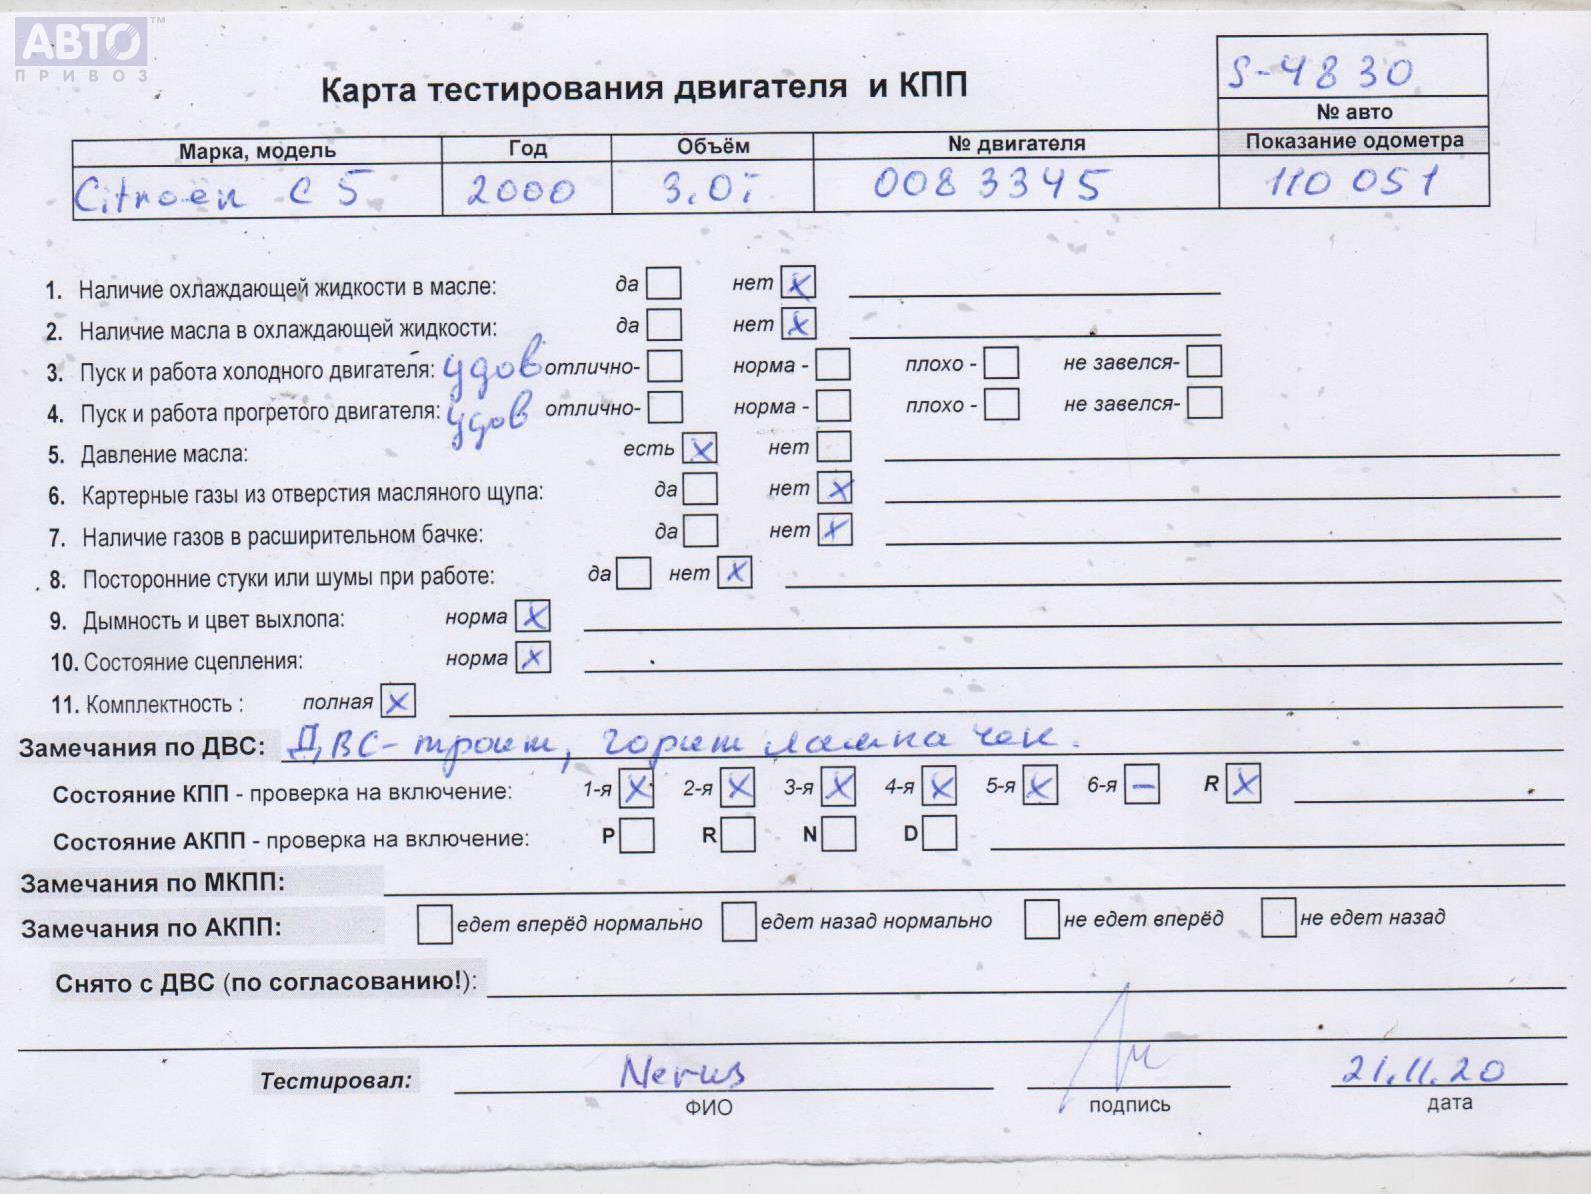 АВТО™
ПРИВОЗ
Карта тестирования двигателя и КПП
S-4830
№ авто
Марка, модель Год Объём № двигателя Показание одометра
Citroën C5 2000 3.0i 0083345 110 051
1. Наличие охлаждающей жидкости в масле: да нет x
2. Наличие масла в охлаждающей жидкости: да нет x
3. Пуск и работа холодного двигателя: удов отлично- норма - плохо - не завелся-
4. Пуск и работа прогретого двигателя: удов отлично- норма - плохо - не завелся-
5. Давление масла: есть x нет
6. Картерные газы из отверстия масляного щупа: да нет x
7. Наличие газов в расширительном бачке: да нет x
8. Посторонние стуки или шумы при работе: да нет x
9. Дымность и цвет выхлопа: норма x
10. Состояние сцепления: норма x
11. Комплектность : полная x
Замечания по ДВС: ДВС-троит, горит лампа чек.
Состояние КПП - проверка на включение: 1-я x 2-я x 3-я x 4-я x 5-я x 6-я – R x
Состояние АКПП - проверка на включение: P R N D
Замечания по МКПП:
Замечания по АКПП: едет вперёд нормально едет назад нормально не едет вперёд не едет назад
Снято с ДВС (по согласованию!):
Тестировал: 21.11.20
ФИО подпись дата